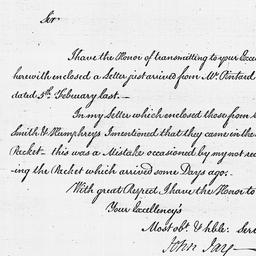 Sir
I have the Honor of transmitting to your Excel
herewith enclosed a Letter just arrived from Mr. Pintard
dated 5th. February last. —
In my Letter which enclosed those from
Smith & Humphreys I mentioned that they came in the
Packet — this was a Mistake occasioned by my not rec
ing the Packet which arrived some Days ago:
With great Respect, I have the Honor to
Your Excellency's
Most obt. & hble: Serv
John Jay —